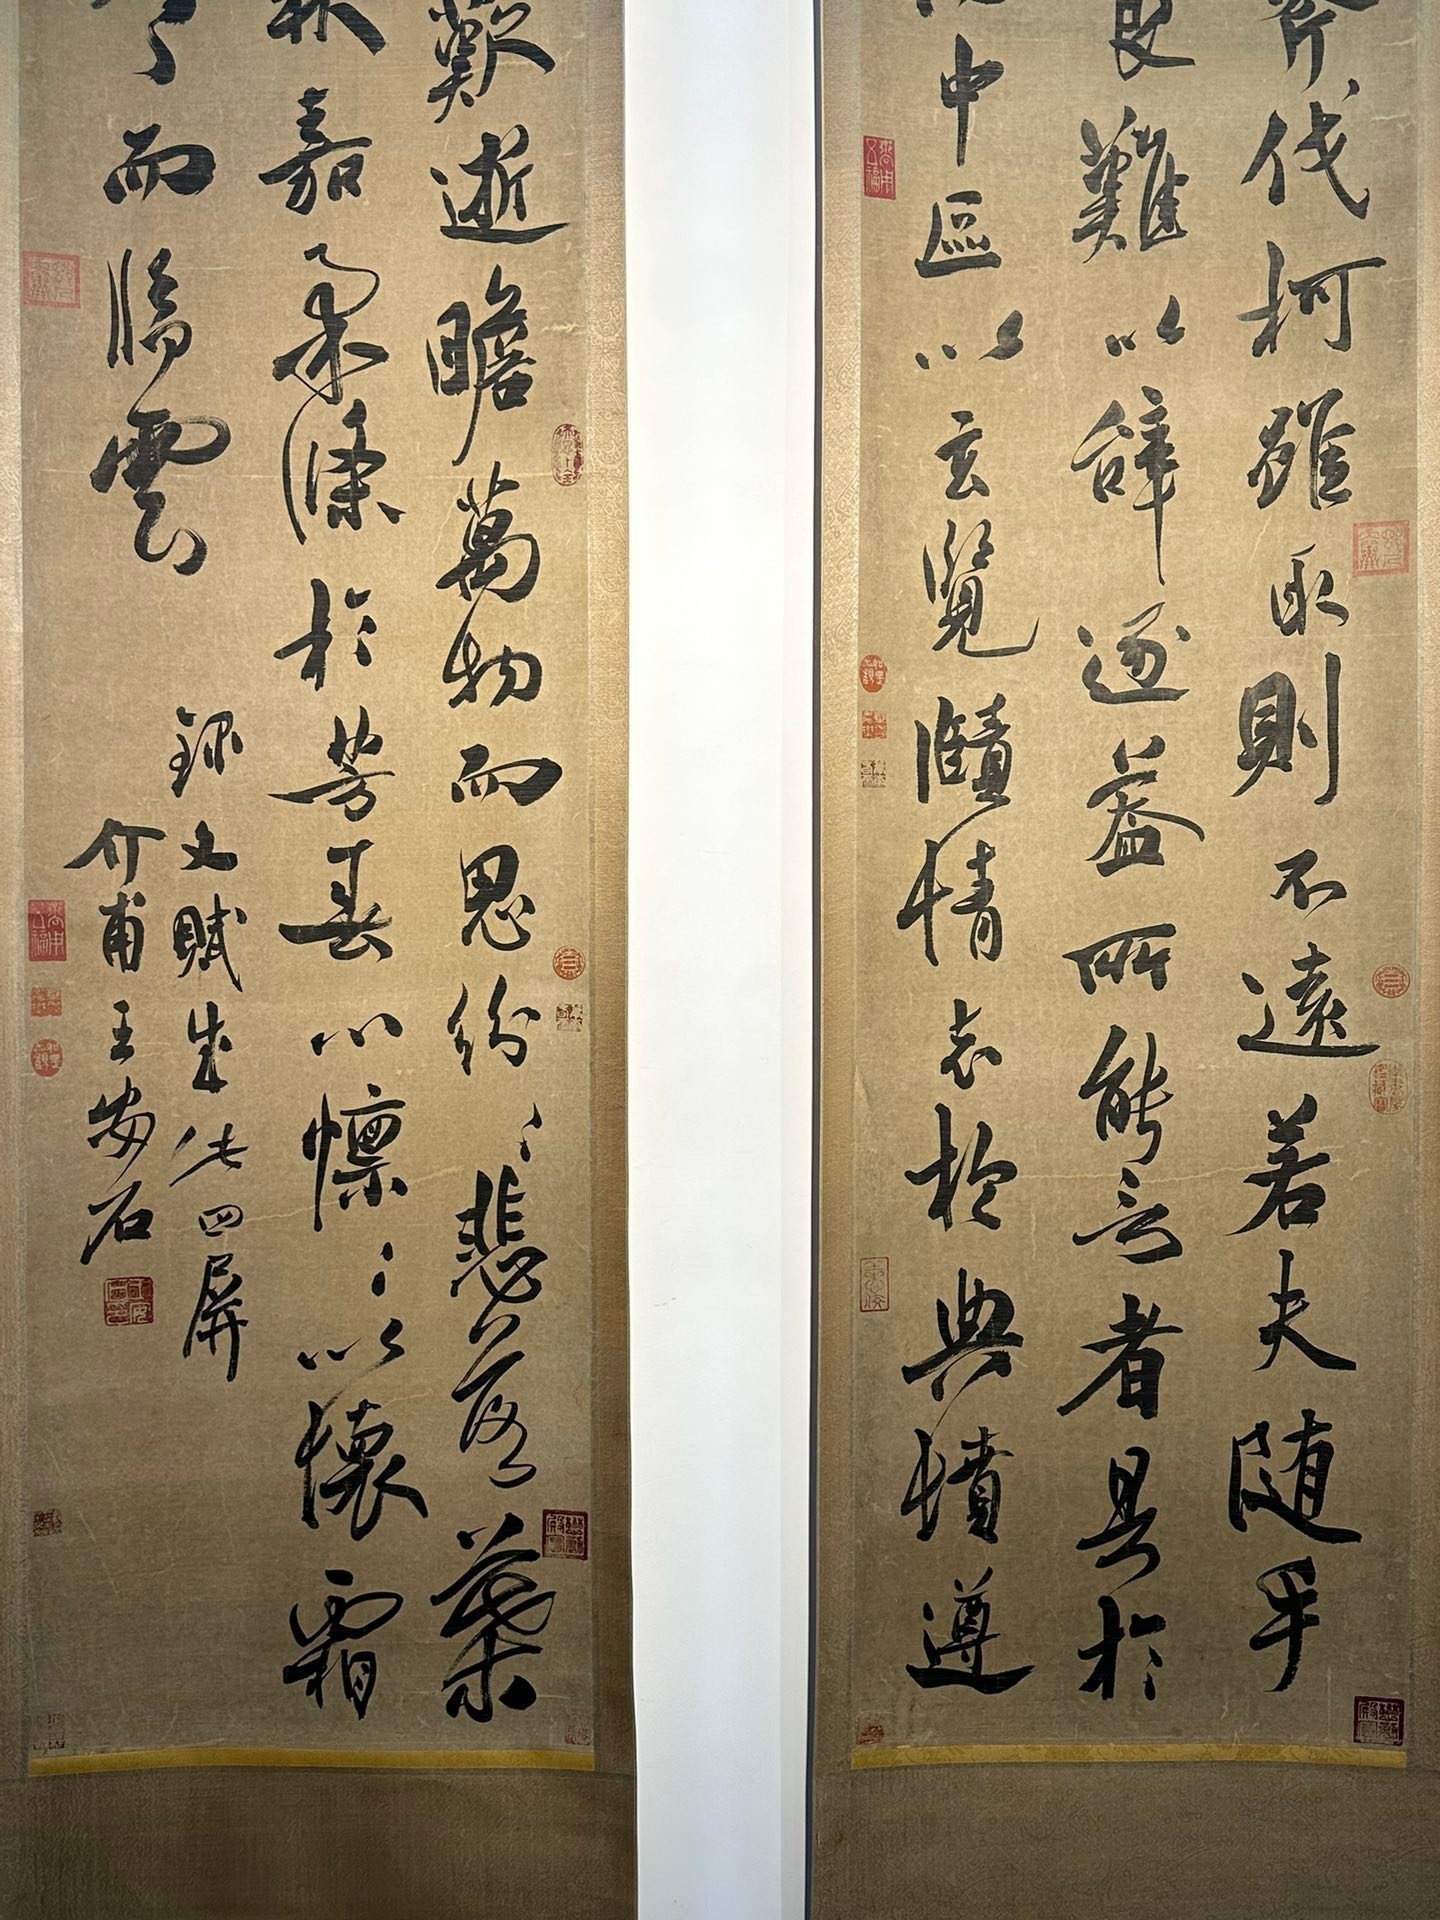 斧伐柯雖取則不遠若夫随手
良難以辝逮蓋所能言者具於
中區以玄覽頤情志於典墳遵
歎逝瞻萬物而思紛〻悲落葉
秋嘉柔條於芳春心懍〻以懷霜
而臨雲
錄文賦成此四屏
介甫王安石